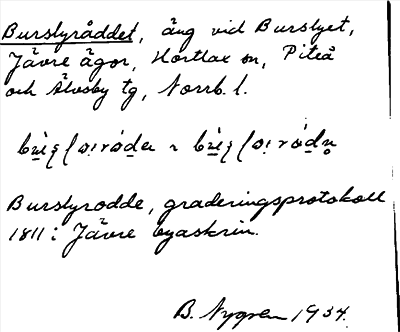 Burstyråddet, äng vid Burstyet,
Jävre ägor, Hortlax sn, Piteå
och Älvsby tg, Norrb. l.
Burstyrodde, graderingsprotokoll
1811 i Jävre byaskrin.
B. Nygren 1934.